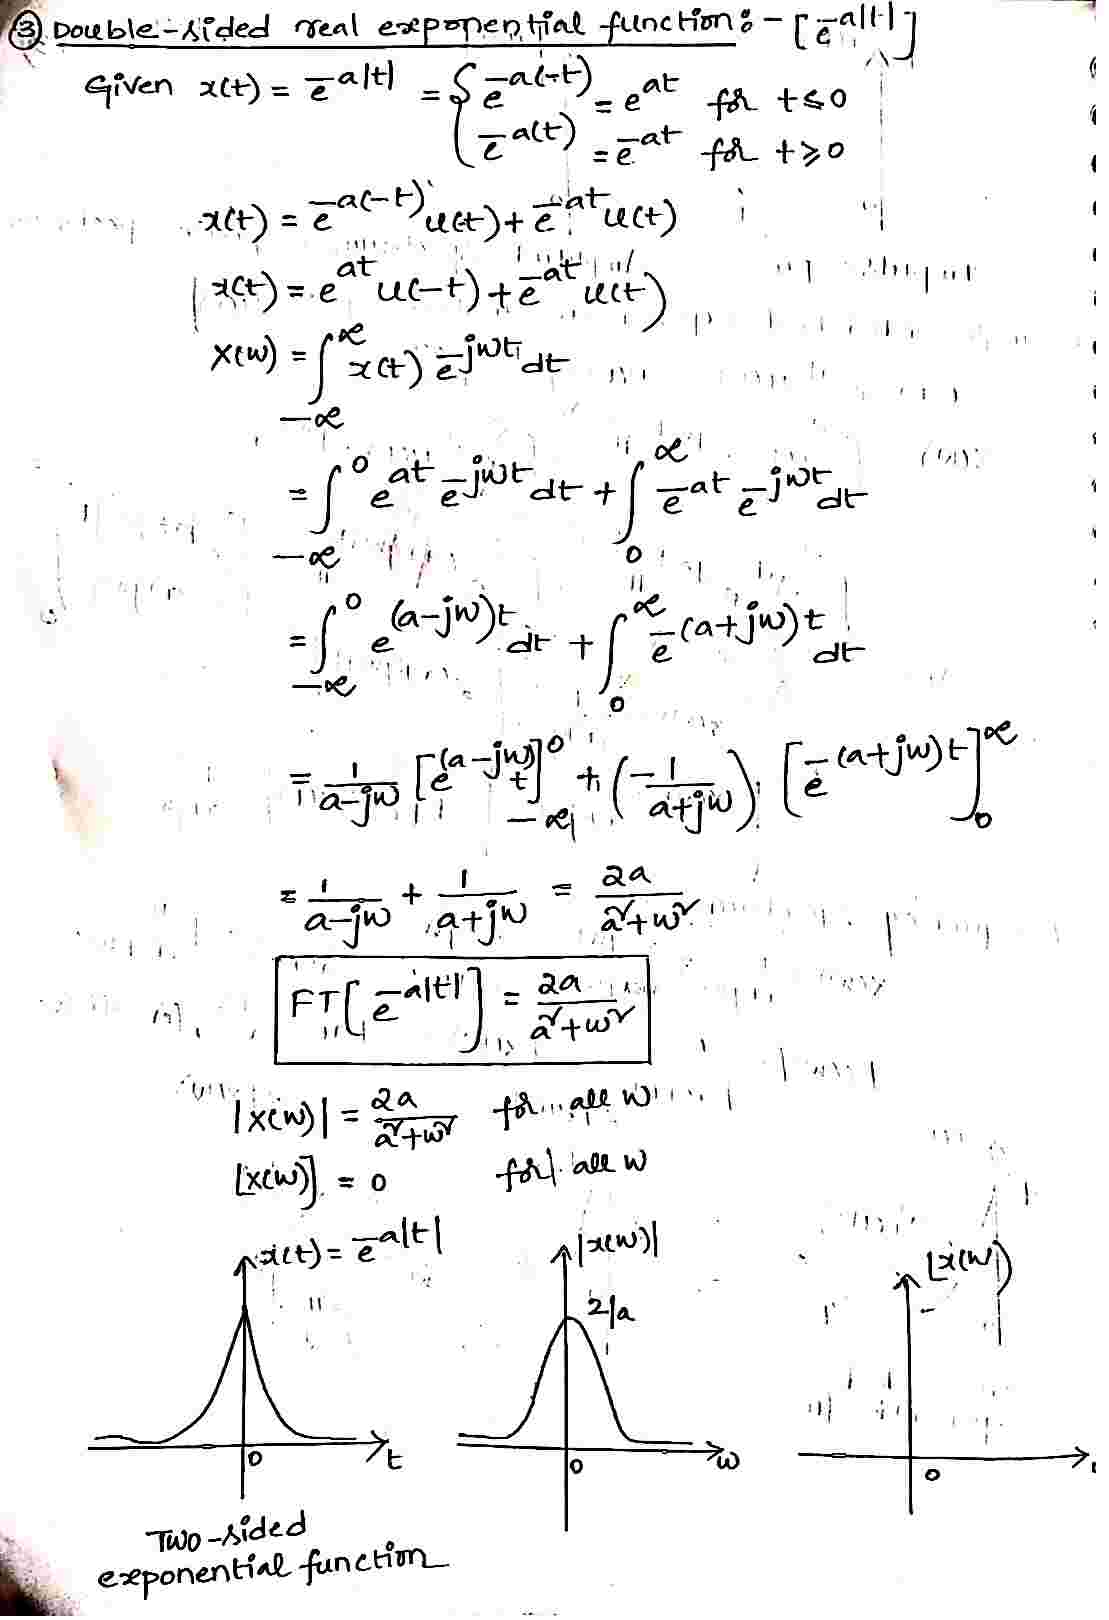 ③ Double-sided real exponential function:- [e^-a|t|]
Given x(t) = e^-a|t| = { e^-a(-t) = e^at for t≤0
e^-a(t) = e^-at for t≥0
x(t) = e^-a(-t) u(-t) + e^-at u(t)
x(t) = e^at u(-t) + e^-at u(t)
X(w) = ∫_-∞^∞ x(t) e^-jwt dt
= ∫_-∞^0 e^at e^-jwt dt + ∫_0^∞ e^-at e^-jwt dt
= ∫_-∞^0 e^(a-jw)t dt + ∫_0^∞ e^-(a+jw)t dt
= 1/(a-jw) [e^(a-jw)t]_-∞^0 + (-1/(a+jw)) [e^-(a+jw)t]_0^∞
= 1/(a-jw) + 1/(a+jw) = 2a/(a²+w²)
FT[e^-a|t|] = 2a/(a²+w²)
|X(w)| = 2a/(a²+w²) for all w
∠X(w) = 0 for all w
x(t) = e^-a|t| |x(w)| ∠x(w)
2/a
0 t 0 w 0
Two-sided
exponential function